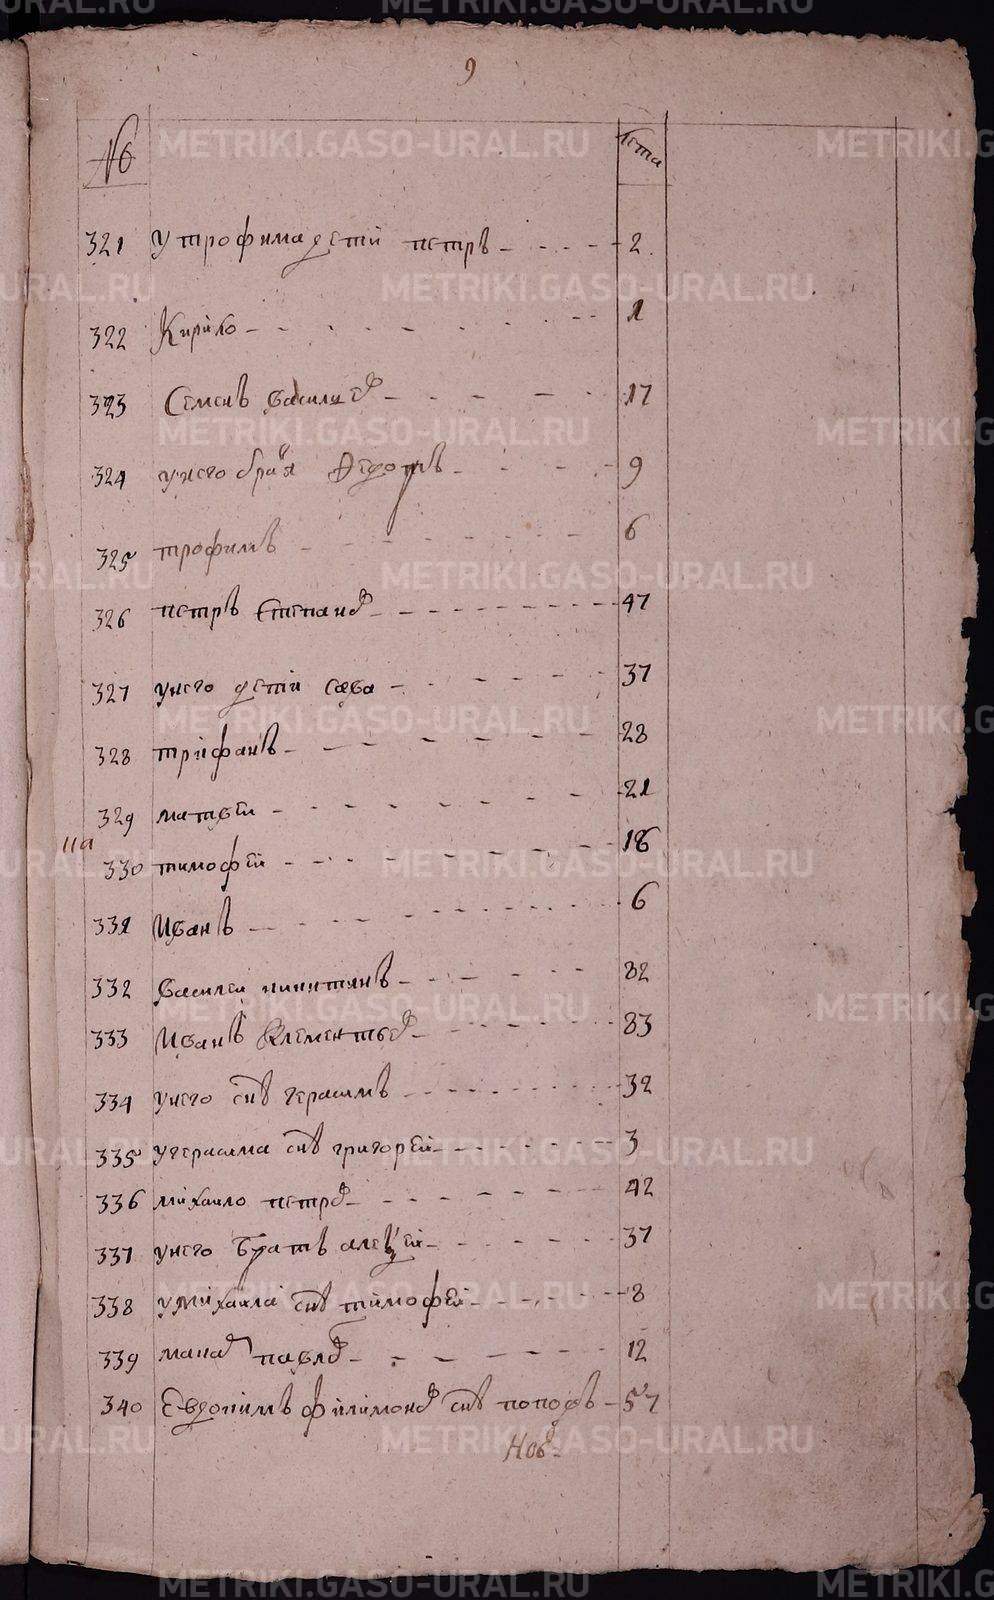 9
№ лета
321 у трофима детей петръ 2
322 Кирило 1
323 Семенъ василиев 17
324 у него братя Федотъ 9
325 трофимъ 6
326 петръ Степанов 47
327 у него детей сава 37
328 трифанъ 28
329 матвеи 21
11а
330 тимофеи 16
331 Иванъ 6
332 василеи никитинъ 32
333 Иванъ Клементьев 83
334 у него снъ герасимъ 32
335 у герасима снъ григореи 3
336 михаило петров 42
337 у него братъ алексеи 37
338 у михаила снъ тимофеи 8
339 павлов 12
340 Евдокимъ филимонов снъ поповъ 57
METRIKI.GASO-URAL.RU